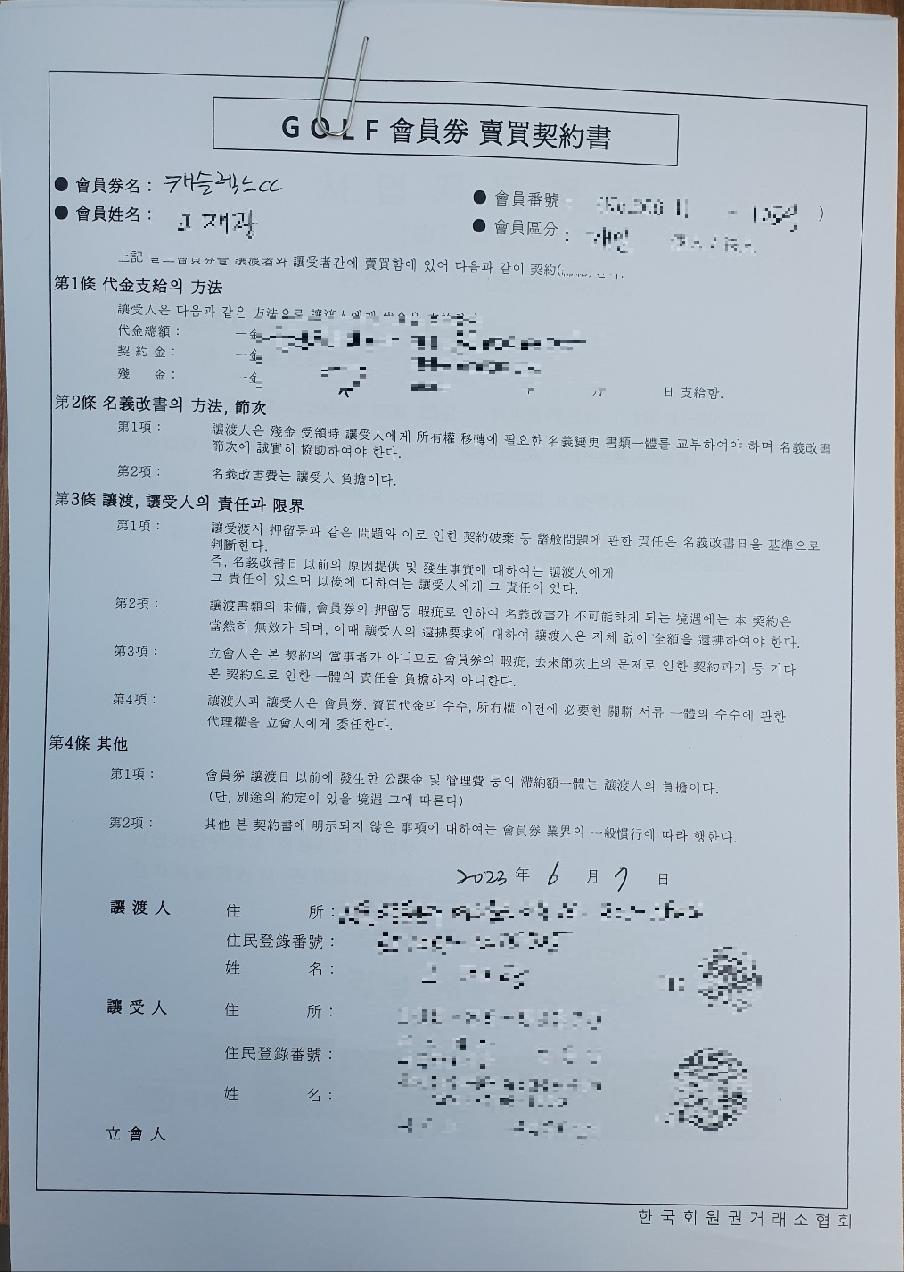 GOLF 會員券 賣買契約書
● 會員券名 : 캐슬렉스CC
● 會員番號 :
● 會員姓名 :
● 會員區分 :
上記 會員券을 讓渡者와 讓受者간에 賣買함에 있어 다음과 같이 契約
第1條 代金支給의 方法
讓受人은 다음과 같은 方法으로 讓渡人에게
代金總額 : 一金
契約金 : 一金
殘金 : 一金 日 支給함.
第2條 名義改書의 方法, 節次
第1項 : 讓渡人은 殘金 受領時 讓受人에게 所有權 移轉에 필요한 名義變更 書類一體를 교부하여야 하며 名義改書
節次에 誠實히 協助하여야 한다.
第2項 : 名義改書費는 讓受人 負擔이다.
第3條 讓渡, 讓受人의 責任과 限界
第1項 : 讓受渡시 押留등과 같은 問題와 이로 인한 契約破棄 등 諸般問題에 관한 責任은 名義改書日을 基準으로
判斷한다.
즉, 名義改書日 以前의 原因提供 및 發生事實에 대하여는 讓渡人에게
그 責任이 있으며 以後에 대하여는 讓受人에게 그 責任이 있다.
第2項 : 讓渡書類의 未備, 會員券의 押留등 瑕疵로 인하여 名義改書가 不可能하게 되는 境遇에는 本 契約은
當然히 無效가 되며, 이때 讓受人의 還拂要求에 대하여 讓渡人은 지체 없이 全額을 還拂하여야 한다.
第3項 : 立會人은 본 契約의 當事者가 아니므로 會員券의 瑕疵, 去來節次上의 문제로 인한 契約파기 등 기타
본 契約으로 인한 一體의 責任을 負擔하지 아니한다.
第4項 : 讓渡人과 讓受人은 會員券, 買買代金의 수수, 所有權 이전에 必要한 關聯 서류 一體의 수수에 관한
代理權을 立會人에게 委任한다.
第4條 其他
第1項 : 會員券 讓渡日 以前에 發生한 公課金 및 管理費 등의 滯納額一體는 讓渡人의 負擔이다.
(단, 別途의 約定이 있을 境遇 그에 따른다)
第2項 : 其他 본 契約書에 明示되지 않은 事項에 대하여는 會員券 業界의 一般慣行에 따라 행한다.
2023 年 6 月 7 日
讓渡人 住 所 :
住民登錄番號 :
姓 名 :
讓受人 住 所 :
住民登錄番號 :
姓 名 :
立會人
한국회원권거래소협회